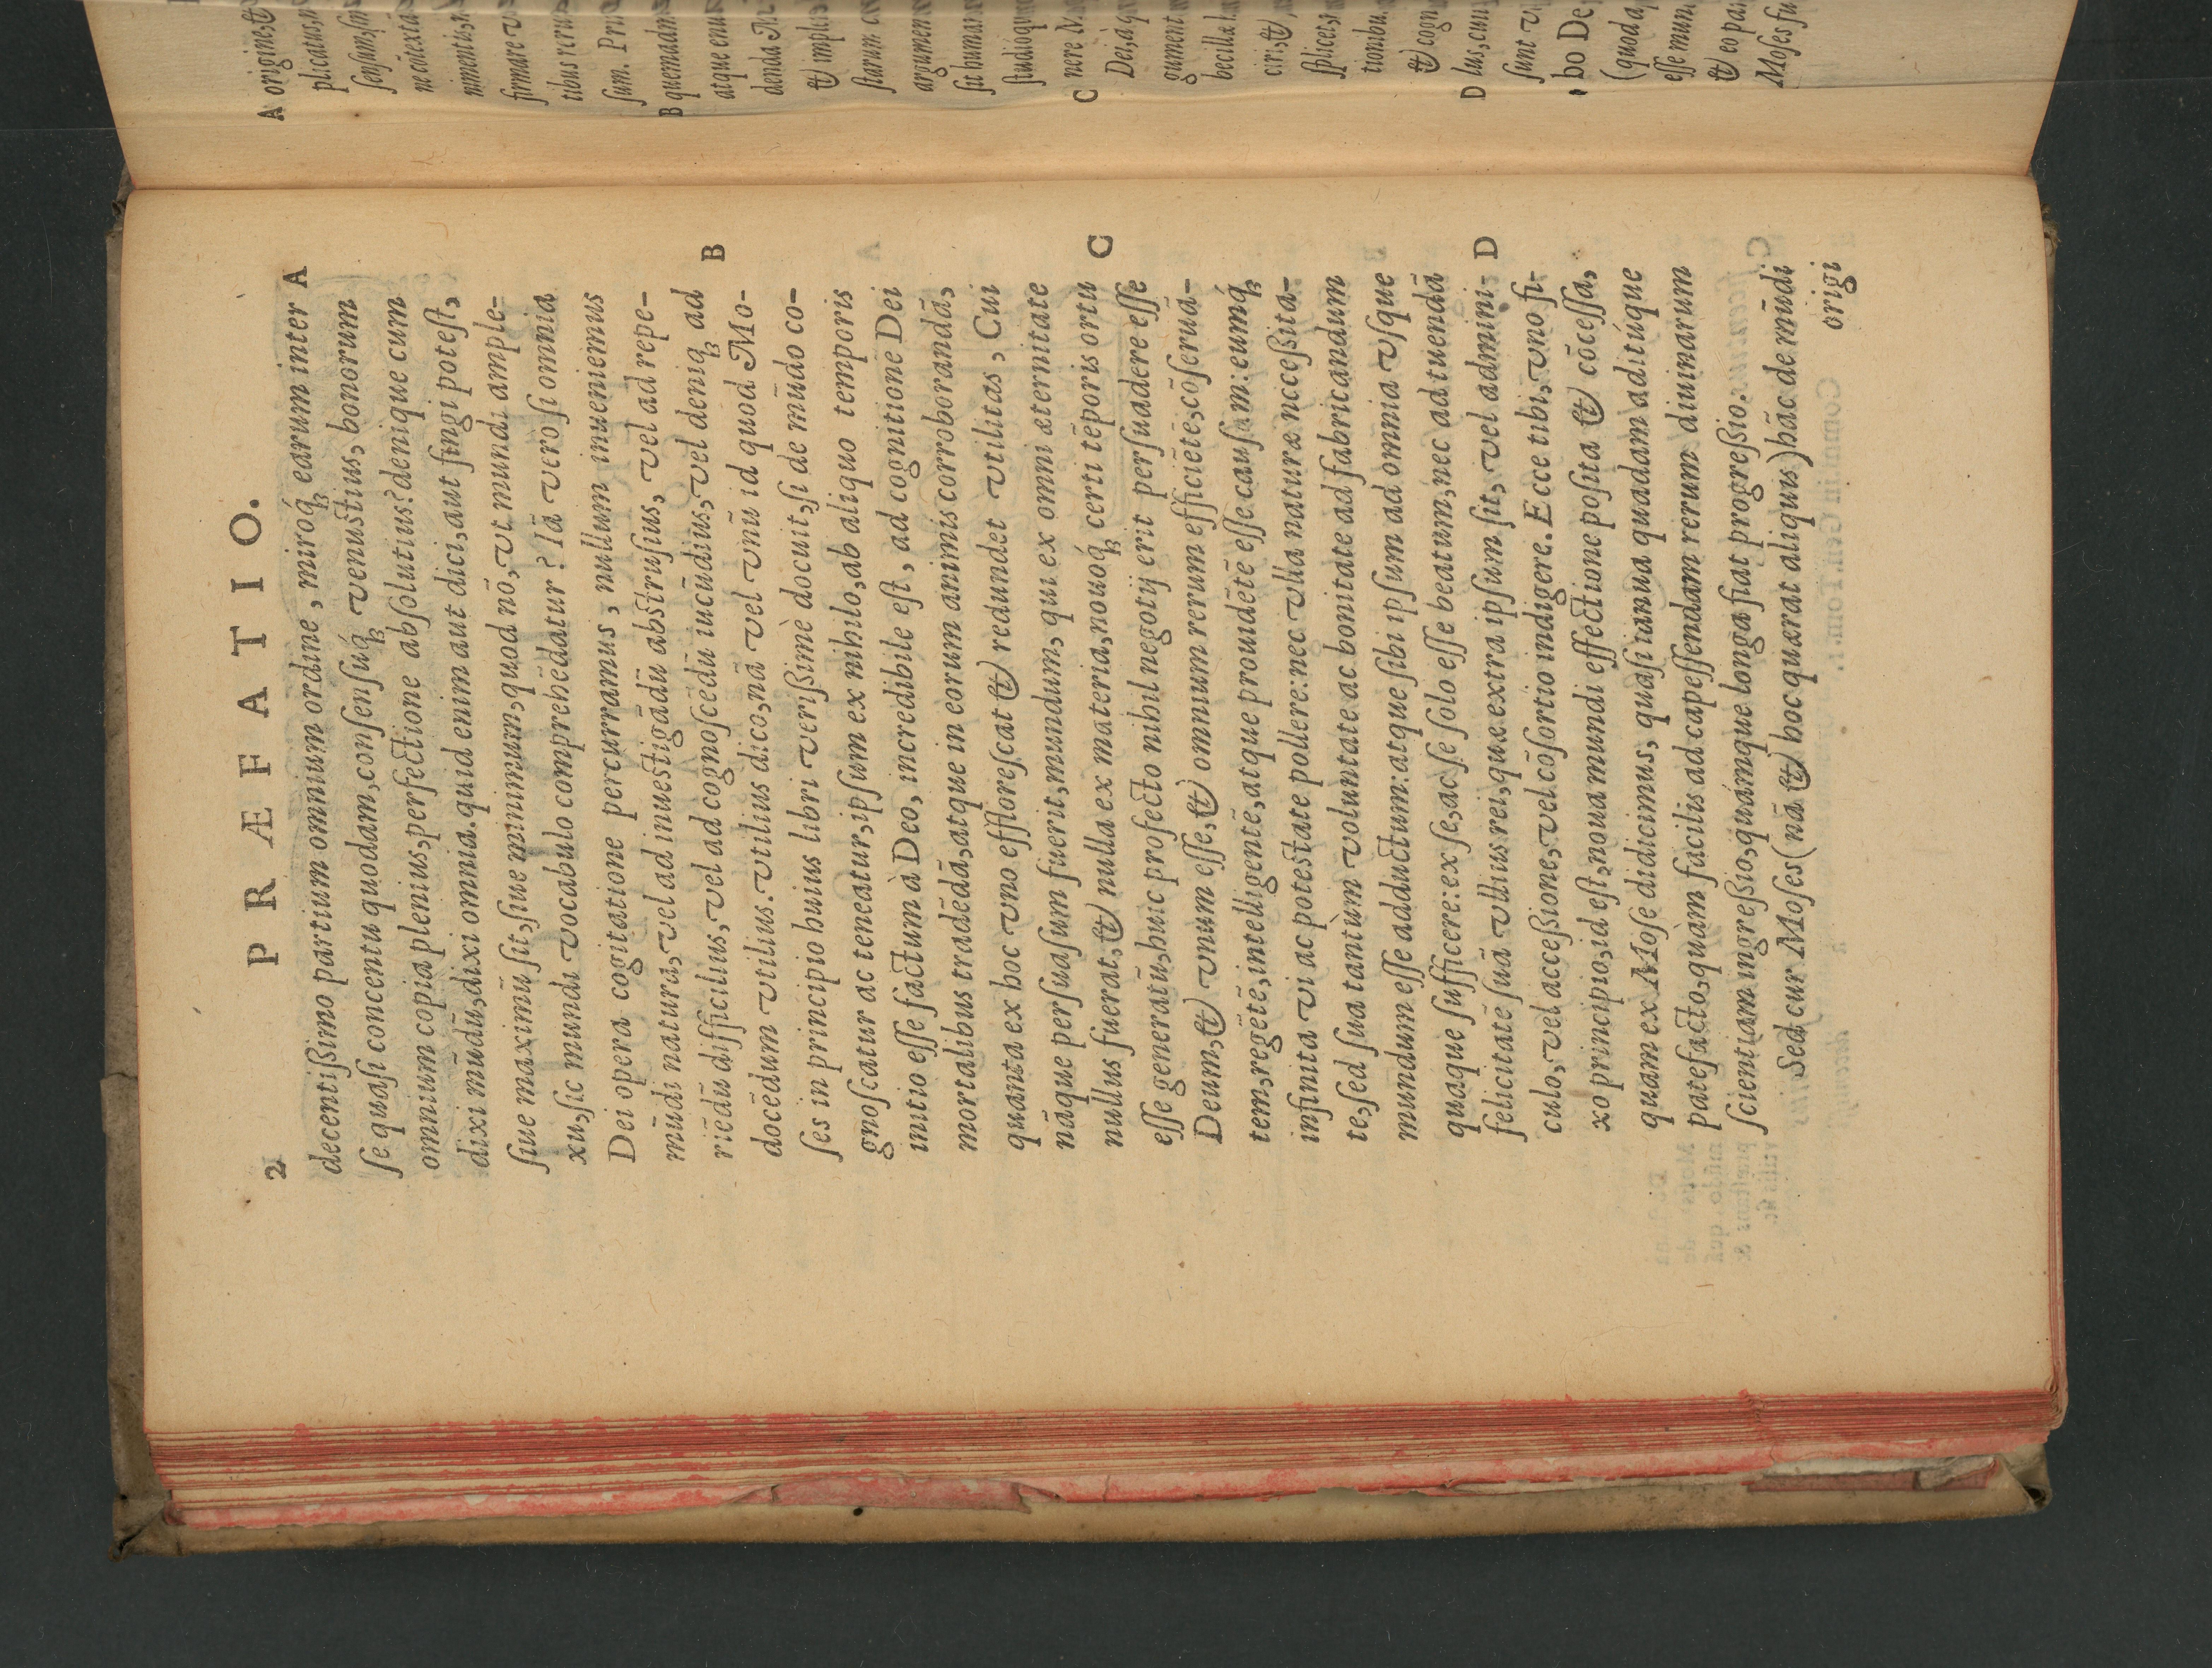 2 PRÆFATIO.
decentißimo partium omnium ordine, miroq́ꝫ earum inter A
ſe quaſi concentu quodam, conſenſuq́ꝫ venuſtius, bonorum
omnium copia plenius, perfectione abſolutius? denique cum
dixi mūdū, dixi omnia. quid enim aut dici, aut fingi poteſt,
ſiue maximū ſit, ſiue minimum, quod nō, vt mundi ample-
xu, ſic mundi vocabulo comprehēdatur? Iā vero ſi omnia
Dei opera cogitatione percurramus, nullum inueniemus
mūdi natura, vel ad inueſtigādū abſtruſius, vel ad repe-
riēdū difficilius, vel ad cognoſcēdū iucūdius, vel deniqꝫ ad B
docēdum vtilius. vtilius dico, nā vel vnū id quod Mo-
ſes in principio huius libri verißimè docuit, ſi de mūdo co-
gnoſcatur ac teneatur, ipſum ex nihilo, ab aliquo temporis
initio eſſe factum à Deo, incredibile eſt, ad cognitionē Dei
mortalibus tradēdā, atque in eorum animis corroborandā,
quanta ex hoc vno effloreſcat & redundet vtilitas, Cui
nāque perſuaſum fuerit, mundum, qui ex omni æternitate
nullus fuerat, & nulla ex materia, nouoq́ꝫ certi tēporis ortu C
eſſe generatū, huic profecto nihil negotij erit perſuadere eſſe
Deum, & vnum eſſe, & omnium rerum efficiētē, cōſeruā-
tem, regētē, intelligentē, atque prouidētē eſſe cauſam: eumq́ꝫ
infinita vi ac poteſtate pollere: nec vlla naturæ neceßita-
te, ſed ſua tantùm voluntate ac bonitate ad fabricandum
mundum eſſe adductum: atque ſibi ipſum ad omnia vſque
quaque ſufficere: ex ſe, ac ſe ſolo eſſe beatum, nec ad tuendā
felicitatē ſuā vllius rei, quæ extra ipſum ſit, vel admini- D
culo, vel acceßione, vel cōſortio indigere. Ecce tibi, vno fi-
xo principio, id eſt, noua mundi effectione poſita & cōceſſa,
quam ex Moſe didicimus, quaſi ianua quadam aditúque
patefacto, quàm facilis ad capeſſendam rerum diuinarum
ſcientiam ingreßio, quámque longa fiat progreßio.
Sed cur Moſes (nā & hoc quærat aliquis) hāc de mūdi
origi
A origine, &
plicatus,
ſenſum,
firmare
tibus reru
ſum. Pri
B quemadm
atque enu
denda
& imple
ſtarum
argumen
ſit human
ſtudióqu
C nere
Dei, à q
gument
becilla
ciri, &
ſplicet,
tionibu
& cogn
D lus, cum
ſunt
bo De
(quod
eſſe mun
& eo pa
Moſes fu